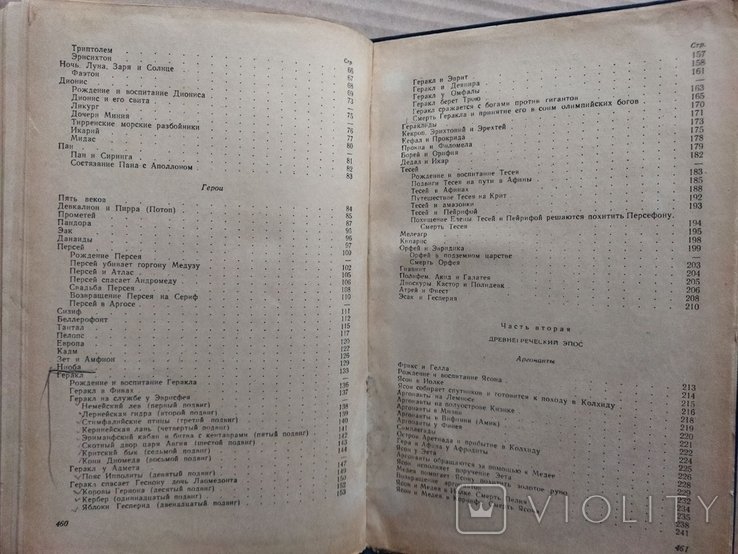 Стр.
Триптолем
Эрисихтон 66
Ночь, Луна, Заря и Солнце 67
Фаэтон 68
Дионис 69
Рождение и воспитание Диониса
Дионис и его свита 73
Ликург 74
Дочери Миния 75
Тирренские морские разбойники 76
Икарий 77
Мидас 80
Пан
Пан и Сиринга 81
Состязание Пана с Аполлоном 82
83
Герои
Пять веков
Девкалион и Пирра (Потоп) 84
Прометей 85
Пандора 91
Эак 93
Данаиды 96
Персей 97
Рождение Персея 100
Персей убивает горгону Медузу —
Персей и Атлас 102
Персей спасает Андромеду 105
Свадьба Персея 106
Возвращение Персея на Сериф 108
Персей в Аргосе 110
Сизиф 111
Беллерофонт 112
Тантал 115
Пелопс 117
Европа 121
Кадм 122
Зет и Амфион 126
Ниоба 129
Геракл 133
Рождение и воспитание Геракла
Геракл в Фивах 136
Геракл на службе у Эврисфея 137
Немейский лев (первый подвиг) 138
Лернейская гидра (второй подвиг) 139
Стимфалийские птицы (третий подвиг) 140
Керинейская лань (четвертый подвиг) 141
Эриманфский кабан и битва с кентаврами (пятый подвиг) 142
Скотный двор царя Авгия (шестой подвиг)
Критский бык (седьмой подвиг)
Кони Диомеда (восьмой подвиг)
Геракл у Адмета
Пояс Ипполиты (девятый подвиг) 147
Геракл спасает Гесиону дочь Лаомедонта 149
Коровы Гериона (десятый подвиг)
Кербер (одиннадцатый подвиг)
Яблоки Гесперид (двенадцатый подвиг) 153
460
Стр.
157
Геракл и Эврит 158
Геракл и Деянира 161
Геракл у Омфалы
Геракл берет Трою 163
Геракл сражается с богами против гигантов 165
Смерть Геракла и принятие его в сонм олимпийских богов 170
Гераклиды 171
Кекроп, Эрихтоний и Эрехтей 173
Кефал и Прокрида 175
Прокна и Филомела 178
Борей и Орифия 179
Дедал и Икар 182
Тесей
Рождение и воспитание Тесея 183
Подвиги Тесея на пути в Афины 185
Тесей в Афинах 188
Путешествие Тесея на Крит 192
Тесей и амазонки 193
Тесей и Пейрифой
Похищение Елены. Тесей и Пейрифой решаются похитить Персефону.
Смерть Тесея 194
Мелеагр 195
Кипарис 198
Орфей и Эвридика 199
Орфей в подземном царстве —
Смерть Орфея 203
Гиацинт 204
Полифем, Акид и Галатея 205
Диоскуры. Кастор и Полидевк 206
Атрей и Фиест 208
Эсак и Гесперия 210
Часть вторая
ДРЕВНЕГРЕЧЕСКИЙ ЭПОС
Аргонавты
Фрикс и Гелла 213
Рождение и воспитание Ясона 214
Ясон в Иолке 215
Ясон собирает спутников и готовится к походу в Колхиду 216
Аргонавты на Лемносе 218
Аргонавты на полуострове Кизике
Аргонавты в Мизии
Аргонавты в Вифинии (Амик)
Аргонавты у Финея
Симплегады
Остров Аретиада и прибытие в Колхиду
Гера и Афина у Афродиты
Ясон у Ээта
Аргонавты обращаются за помощью к Медее
Ясон исполняет поручение Ээта
461
VIOLITY